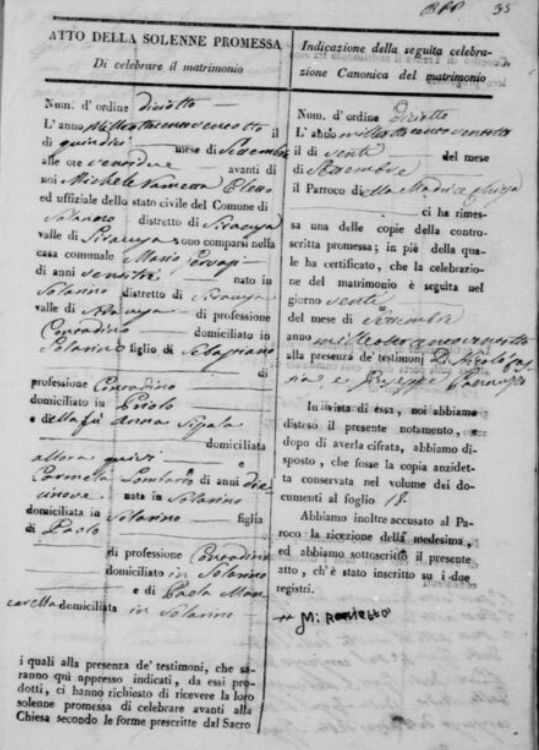 35
ATTO DELLA SOLENNE PROMESSA
Di celebrare il matrimonio
Num. d'ordine diciotto
L'anno milleottocentoventotto il
di quindici mese di Settembre
alle ore ventidue avanti di
noi Michele Eletto
ed uffiziale dello stato civile del Comune di
Solarino distretto di Siracusa
valle di Siracusa sono comparsi nella
casa comunale Mario
di anni ventitre nato in
Solarino distretto di Siracusa
valle di Siracusa di professione
Contadino domiciliato in
Solarino figlio di Sebastiano
di
professione Contadino
domiciliato in Priolo
e della fù Anna Sipala
domiciliata
allora quivi e
Carmela Lombardo di anni die
cinove nata in Solarino
domiciliata in Solarino figlia
di Paolo
di professione Contadino
domiciliato in Solarino
e di Paola Man
carella domiciliata in Solarino
i quali alla presenza de' testimoni, che sa-
ranno qui appresso indicati, da essi pro-
dotti, ci hanno richiesto di ricevere la loro
solenne promessa di celebrare avanti alla
Chiesa secondo le forme prescritte dal Sacro
Indicazione della seguita celebra-
zione Canonica del matrimonio
Num. d'ordine diciotto
L'anno milleottocentoventotto
il di venti del mese
di Settembre
il Parroco della Madrice Chiesa
ci ha rimes-
sa una delle copie della contro-
scritta promessa; in piè della qua-
le ha certificato, che la celebrazio-
ne del matrimonio è seguita nel
giorno venti
del mese di Settembre
anno milleottocentoventotto
alla presenza de' testimonj
e Giuseppe
In vista di essa, noi abbiamo
disteso il presente notamento, e
dopo di averla cifrata, abbiamo di-
sposto, che fosse la copia anzidet-
ta conservata nel volume dei do-
cumenti al foglio 18.
Abbiamo inoltre accusato al Pa-
roco la ricezione della medesima,
ed abbiamo sottoscritto il presente
atto, ch'è stato inscritto su i due
registri.